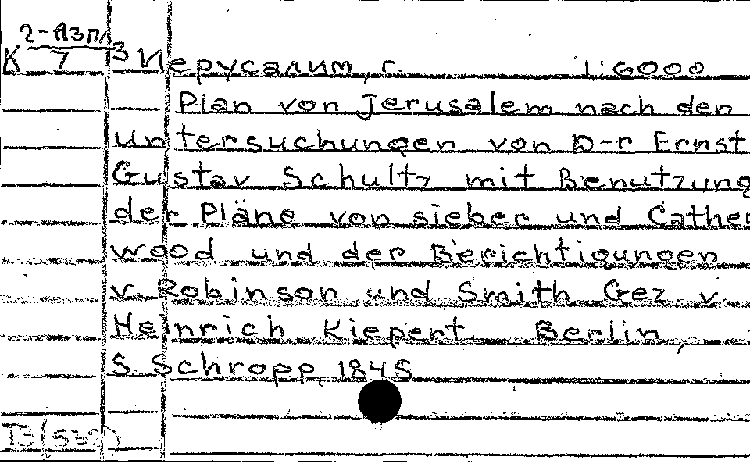 2-Азпл
К 7 3 Иерусалим, г. 1:6000
Plan von Jerusalem nach den
Untersuchungen von D-r Ernst
Gustav Schultz mit Benutzung
der Pläne von sieber und Cather
wood und der Berichtigungen
v. Robinson und Smith Gez. v.
Heinrich Kiepert Berlin,
S Schropp, 1845